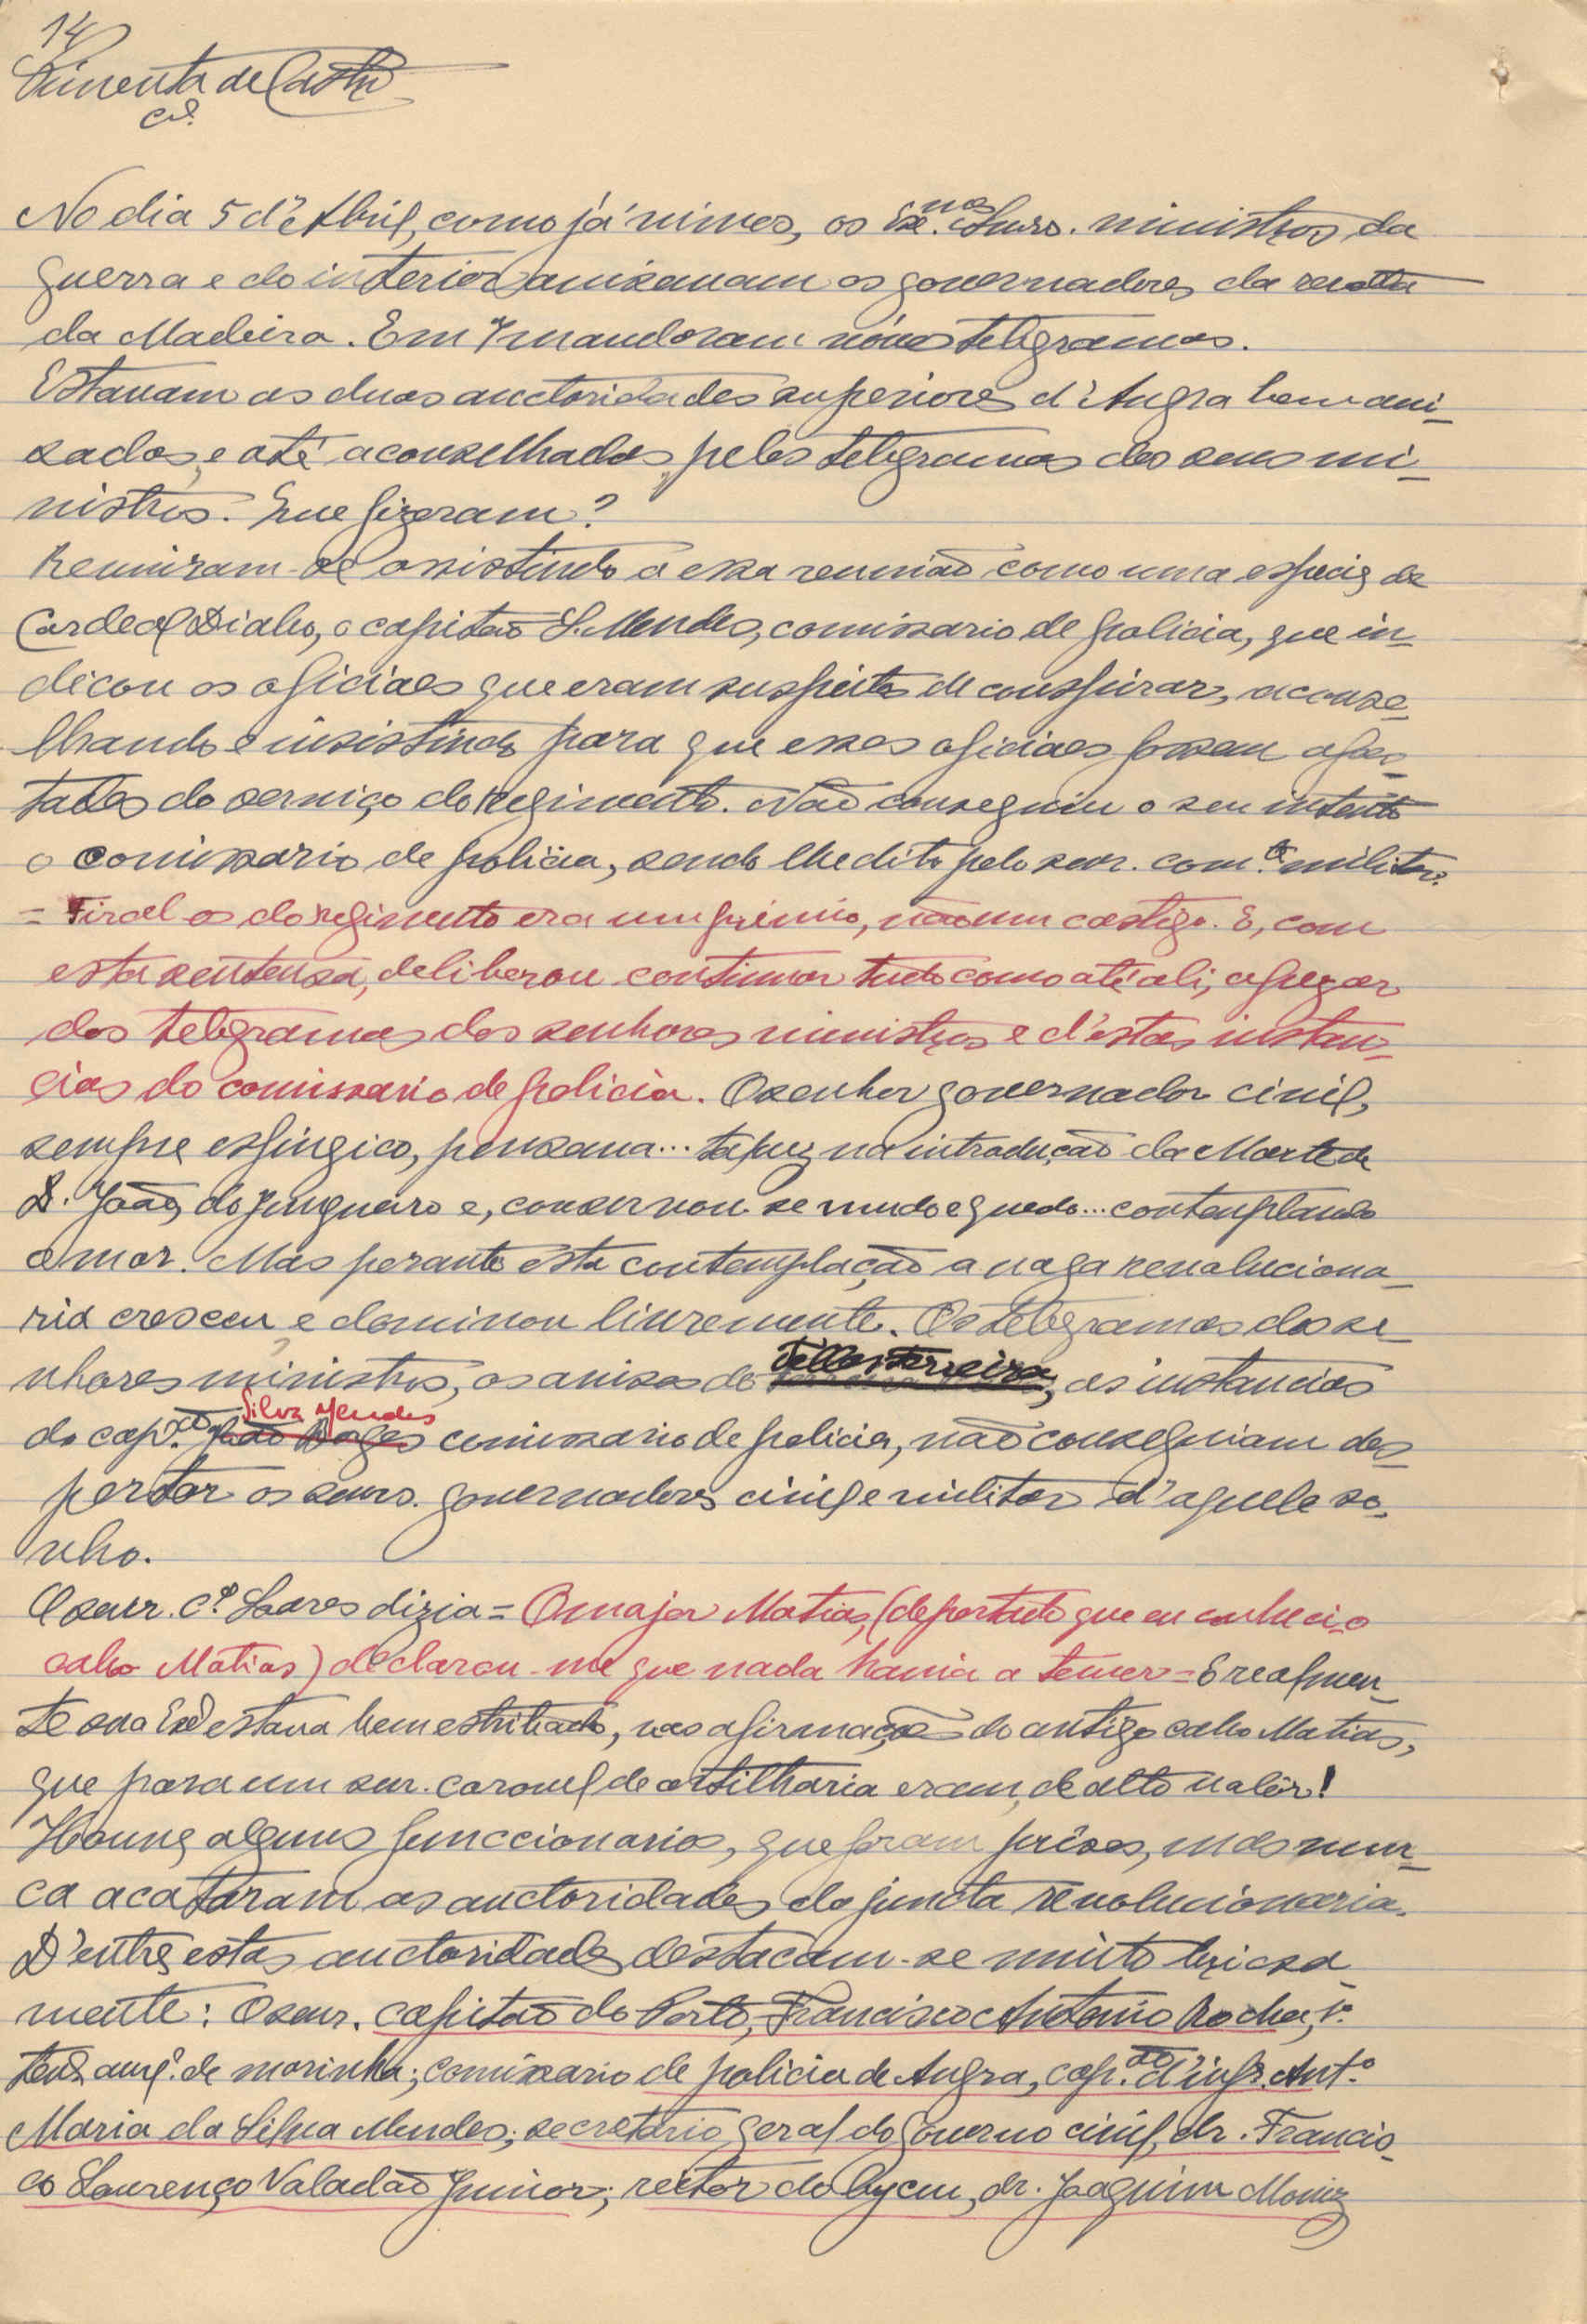 14
Pimenta de Castro
Cel.
No dia 5 d'Abril, como já vimos, os Exmos. Snrs. ministros da
guerra e do interior avisavam os governadores da revolta
da Madeira. Em 7 mandoram nóvos telegramas.
Estavam as duas auctoridades superiores d'Angra bem avi-
sados, e até aconselhados, pelos telegramas dos seus mi-
nistros. Que fizeram?
Reuniram-se assistindo a essa reunião como uma especie de
Cardeal Diabo, o capitão S. Mendes, comissario de policia, que in-
dicou os oficiaes que eram suspeitos de conspirar, aconse-
lhando e insistindo para que esses oficiaes fossem afas-
tados do serviço do regimento. Não conseguiu o seu intento
o comissario de policia, sendo lhe dito pelo snr. com.te militar:
= Tiral os do regimento era um prémio, não um castigo. E, com
esta sentensa, deliberou continuar tudo como até ali, apezar
dos telegramas dos senhores ministros e d'estas instan-
cias do comissario de policia. O senhor governador civil,
sempre esfingico, pensava... talvez na introdução da Morte de
D. João, do Junqueiro e, conservou-se mudo e quedo... contemplando
o mar. Mas perante esta contemplação a vaga revoluciona-
ria cresceu e dominou livremente. Os telegramas dos se-
nhores ministros, os avisos do Telles Ferreira, as instancias
do cap.ão Silva Mendes comissario de policia, não conseguiam des-
pertar os snrs. governadores civil e militar d'aquele so-
nho.
O snr. C.el Soares dizia = O major Matias, (deportado que eu conheci o
cabo Matias) declarou-me que nada havia a temer = E realmen-
te sua Ex.ª estava bem estribado, nas afirmações do antigo cabo Matias,
que para um snr. coronel de artilharia eram, de alto valôr!
Houve alguns funccionarios, que foram prêsos, mas nun-
ca acataram as auctoridades da juncta revolucionaria.
D'entre estas auctoridades destacam-se muito briosa-
mente: O snr. capitão do Porto, Francisco Antonio Rocha, 1.º
tenente de marinha; comissario de policia de Angra, cap.ão d'infr. Ant.º
Maria da Silva Mendes; secretario geral do governo civil, dr. Francis-
co Lourenço Valadão Junior; reitor do lyceu, dr. Joaquim Moniz